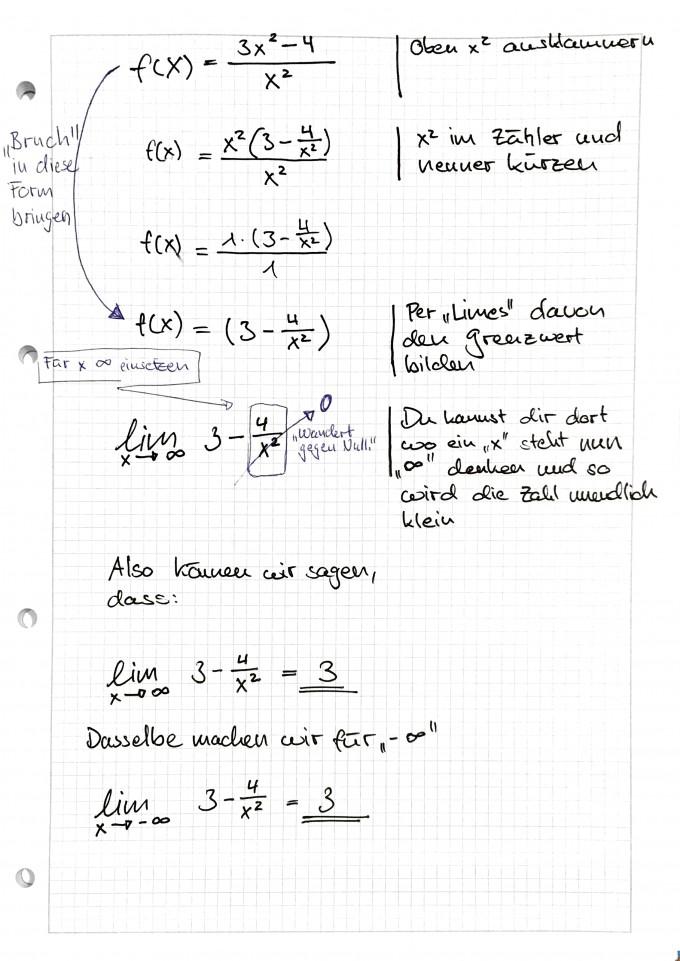 f(x) = (3x² - 4) / x²
Oben x² ausklammern
„Bruch"
in diese
Form
bringen
f(x) = x²(3 - 4/x²) / x²
x² im Zähler und
nenner kürzen
f(x) = 1·(3 - 4/x²) / 1
f(x) = (3 - 4/x²)
Per „Limes" davon
den grenzwert
bilden
Für x ∞ einsetzen
lim x→∞ 3 - 4/x²
0
„Wandert
gegen Null."
Du kannst dir dort
wo ein „x" steht nun
„∞" denken und so
wird die Zahl unendlich
klein
Also können wir sagen,
dass:
lim x→∞ 3 - 4/x² = 3
Dasselbe machen wir für „-∞"
lim x→-∞ 3 - 4/x² = 3